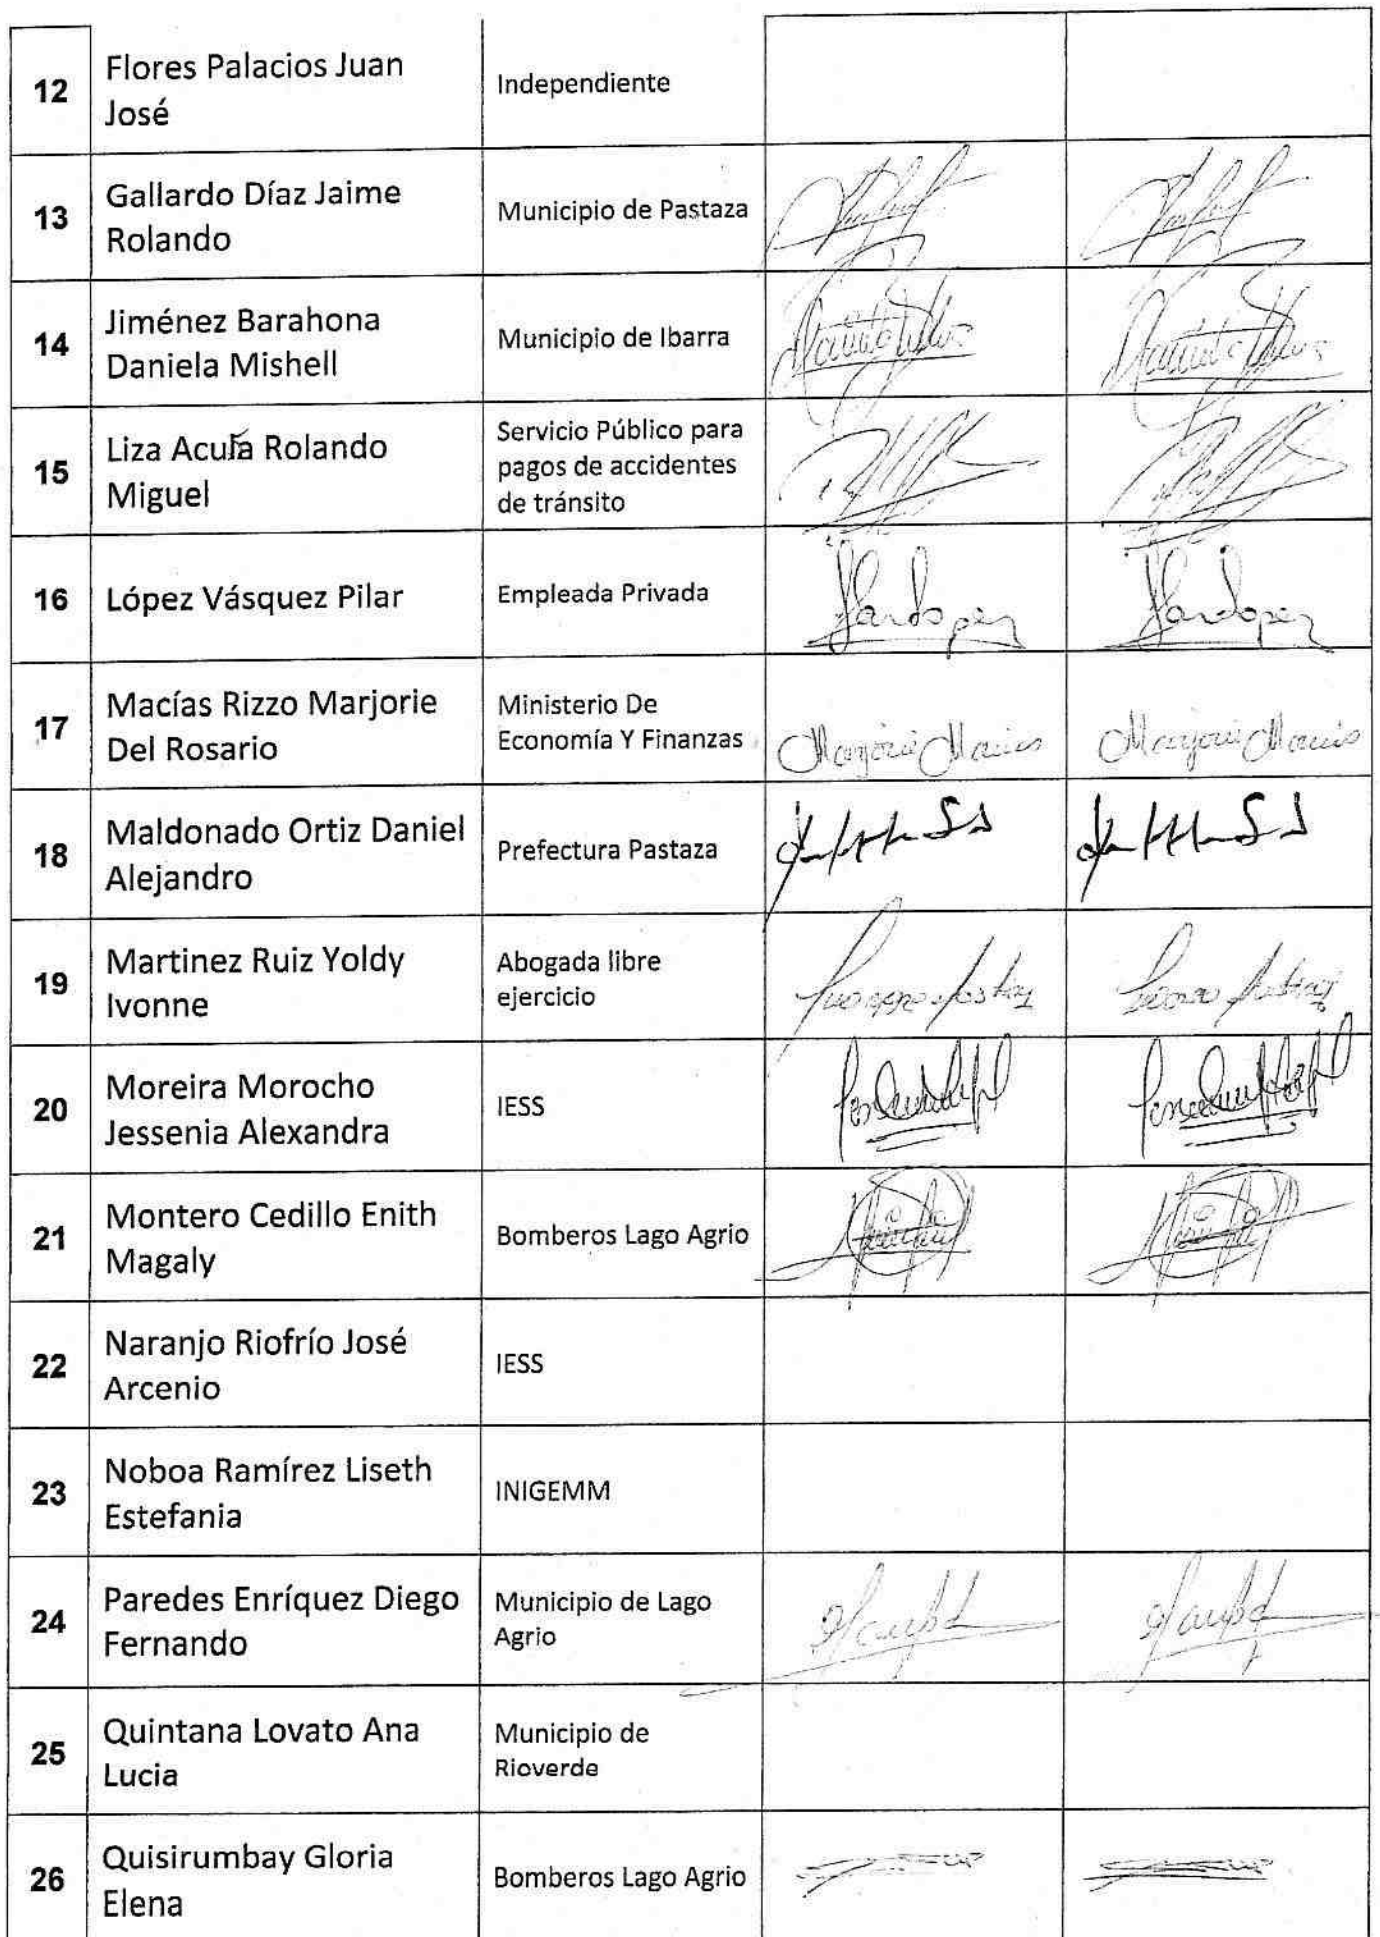 12
Flores Palacios Juan
José
Independiente
13
Gallardo Díaz Jaime
Rolando
Municipio de Pastaza
14
Jiménez Barahona
Daniela Mishell
Municipio de Ibarra
15
Liza Acuña Rolando
Miguel
Servicio Público para
pagos de accidentes
de tránsito
16
López Vásquez Pilar
Empleada Privada
17
Macías Rizzo Marjorie
Del Rosario
Ministerio De
Economía Y Finanzas
Marjorie Macias
Marjorie Macias
18
Maldonado Ortiz Daniel
Alejandro
Prefectura Pastaza
19
Martinez Ruiz Yoldy
Ivonne
Abogada libre
ejercicio
20
Moreira Morocho
Jessenia Alexandra
IESS
21
Montero Cedillo Enith
Magaly
Bomberos Lago Agrio
22
Naranjo Riofrío José
Arcenio
IESS
23
Noboa Ramírez Liseth
Estefania
INIGEMM
24
Paredes Enríquez Diego
Fernando
Municipio de Lago
Agrio
25
Quintana Lovato Ana
Lucia
Municipio de
Rioverde
26
Quisirumbay Gloria
Elena
Bomberos Lago Agrio